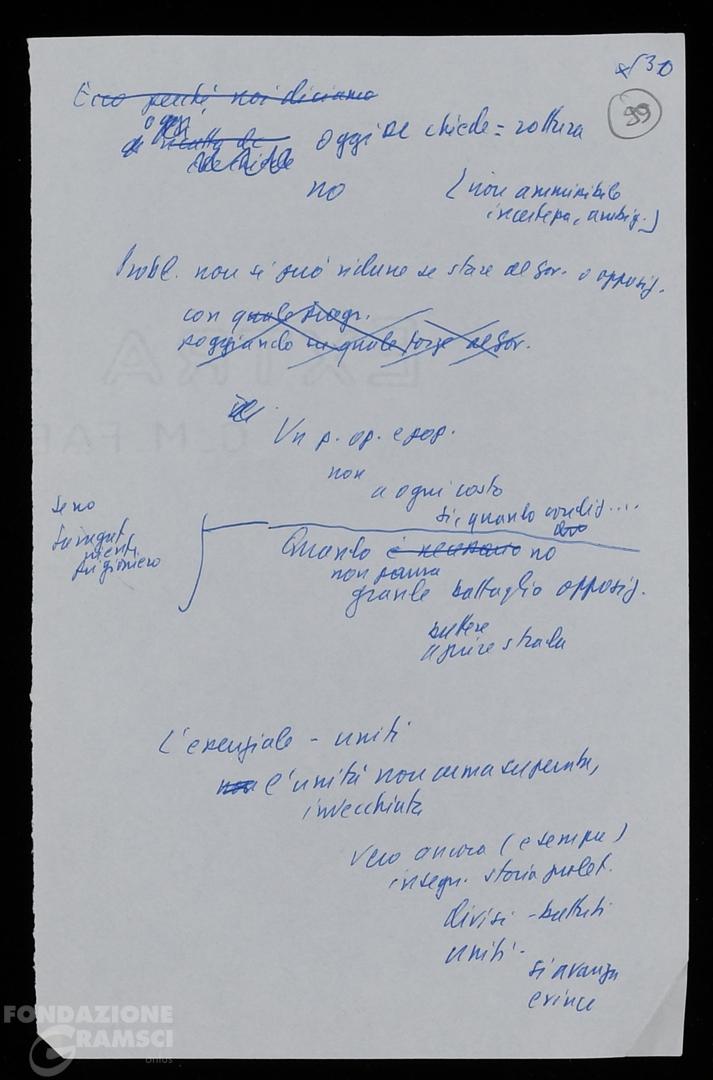 530
99
Ecco perché noi diciamo
oggi
oggi se chiede = rottura
no
(non ammissibile
incertezza, ambig.)
Probl. non si può ridurre se stare al Gov. o opposiz.
con quale progr.
poggiando su quale forze al Gov.
Un p. op. e pop.
non
a ogni costo
sì, quando condiz....
Se no
prigioniero
Quando è necessario no
non paura
grande battaglia opposiz.
battere
aprire strada
L'essenziale - uniti
non l'unità non arma superata,
invecchiata
vero ancora (esempi)
insegn. storia prolet.
divisi - battuti
uniti -
si avanza
e vince
EXTRA
FONDAZIONE
GRAMSCI
onlus